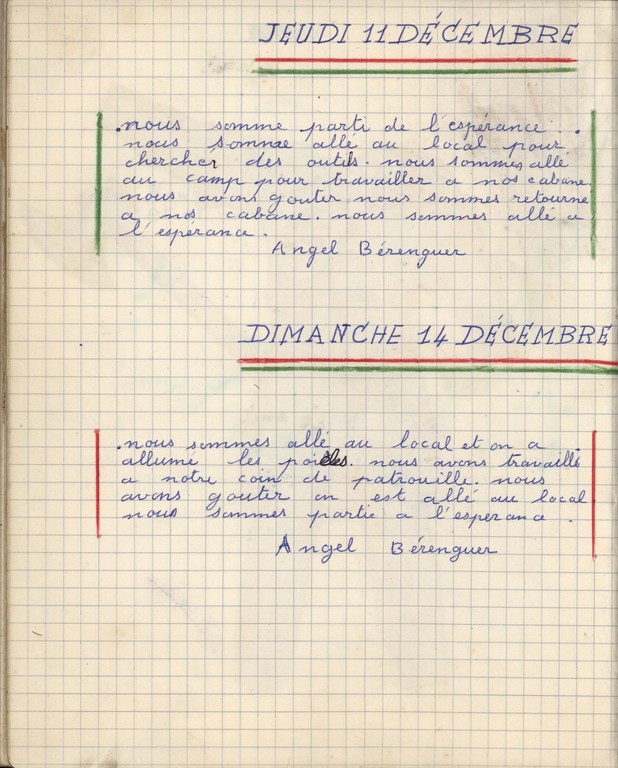 JEUDI 11 DÉCEMBRE
.nous somme parti de l'espérance . .
nous somme allé au local pour
chercher des outils. nous sommes allé
au camp pour travailler a nos cabane.
nous avons gouter nous sommes retourne
a nos cabane. nous sommes allé a
l'espérance.
Angel Bérenguer
DIMANCHE 14 DÉCEMBRE
.nous sommes allé au local et on a .
allumé les poieles. nous avons travaillé
a notre coin de patrouille. nous
avons gouter on est allé au local.
nous sommes partie a l'esperance .
Angel Bérenguer